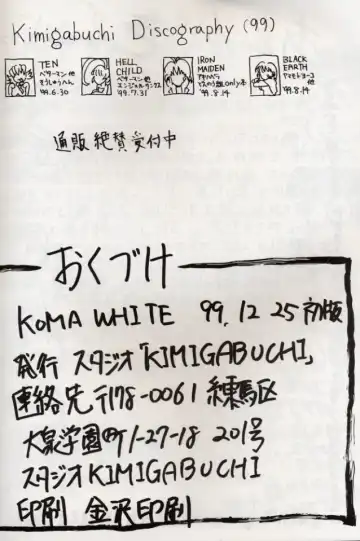 Kimigabuchi Discography (99)
TEN
ベターマン他
そうしゅうへん
99.6.30
HELL
CHILD
ベターマン他
エンジェルリンクス
'99.7.31
IRON
MAIDEN
only本
'99.8.14
BLACK
EARTH
ヤマモトヨーコ
他
'99.8.14
通販絶賛受付中
おくづけ
KOMA WHITE 99.12.25 初版
発行 スタジオ「KIMIGABUCHI」
連絡先 〒178-0061 練馬区
大泉学園町1-27-18 201号
スタジオKIMIGABUCHI
印刷 金沢印刷